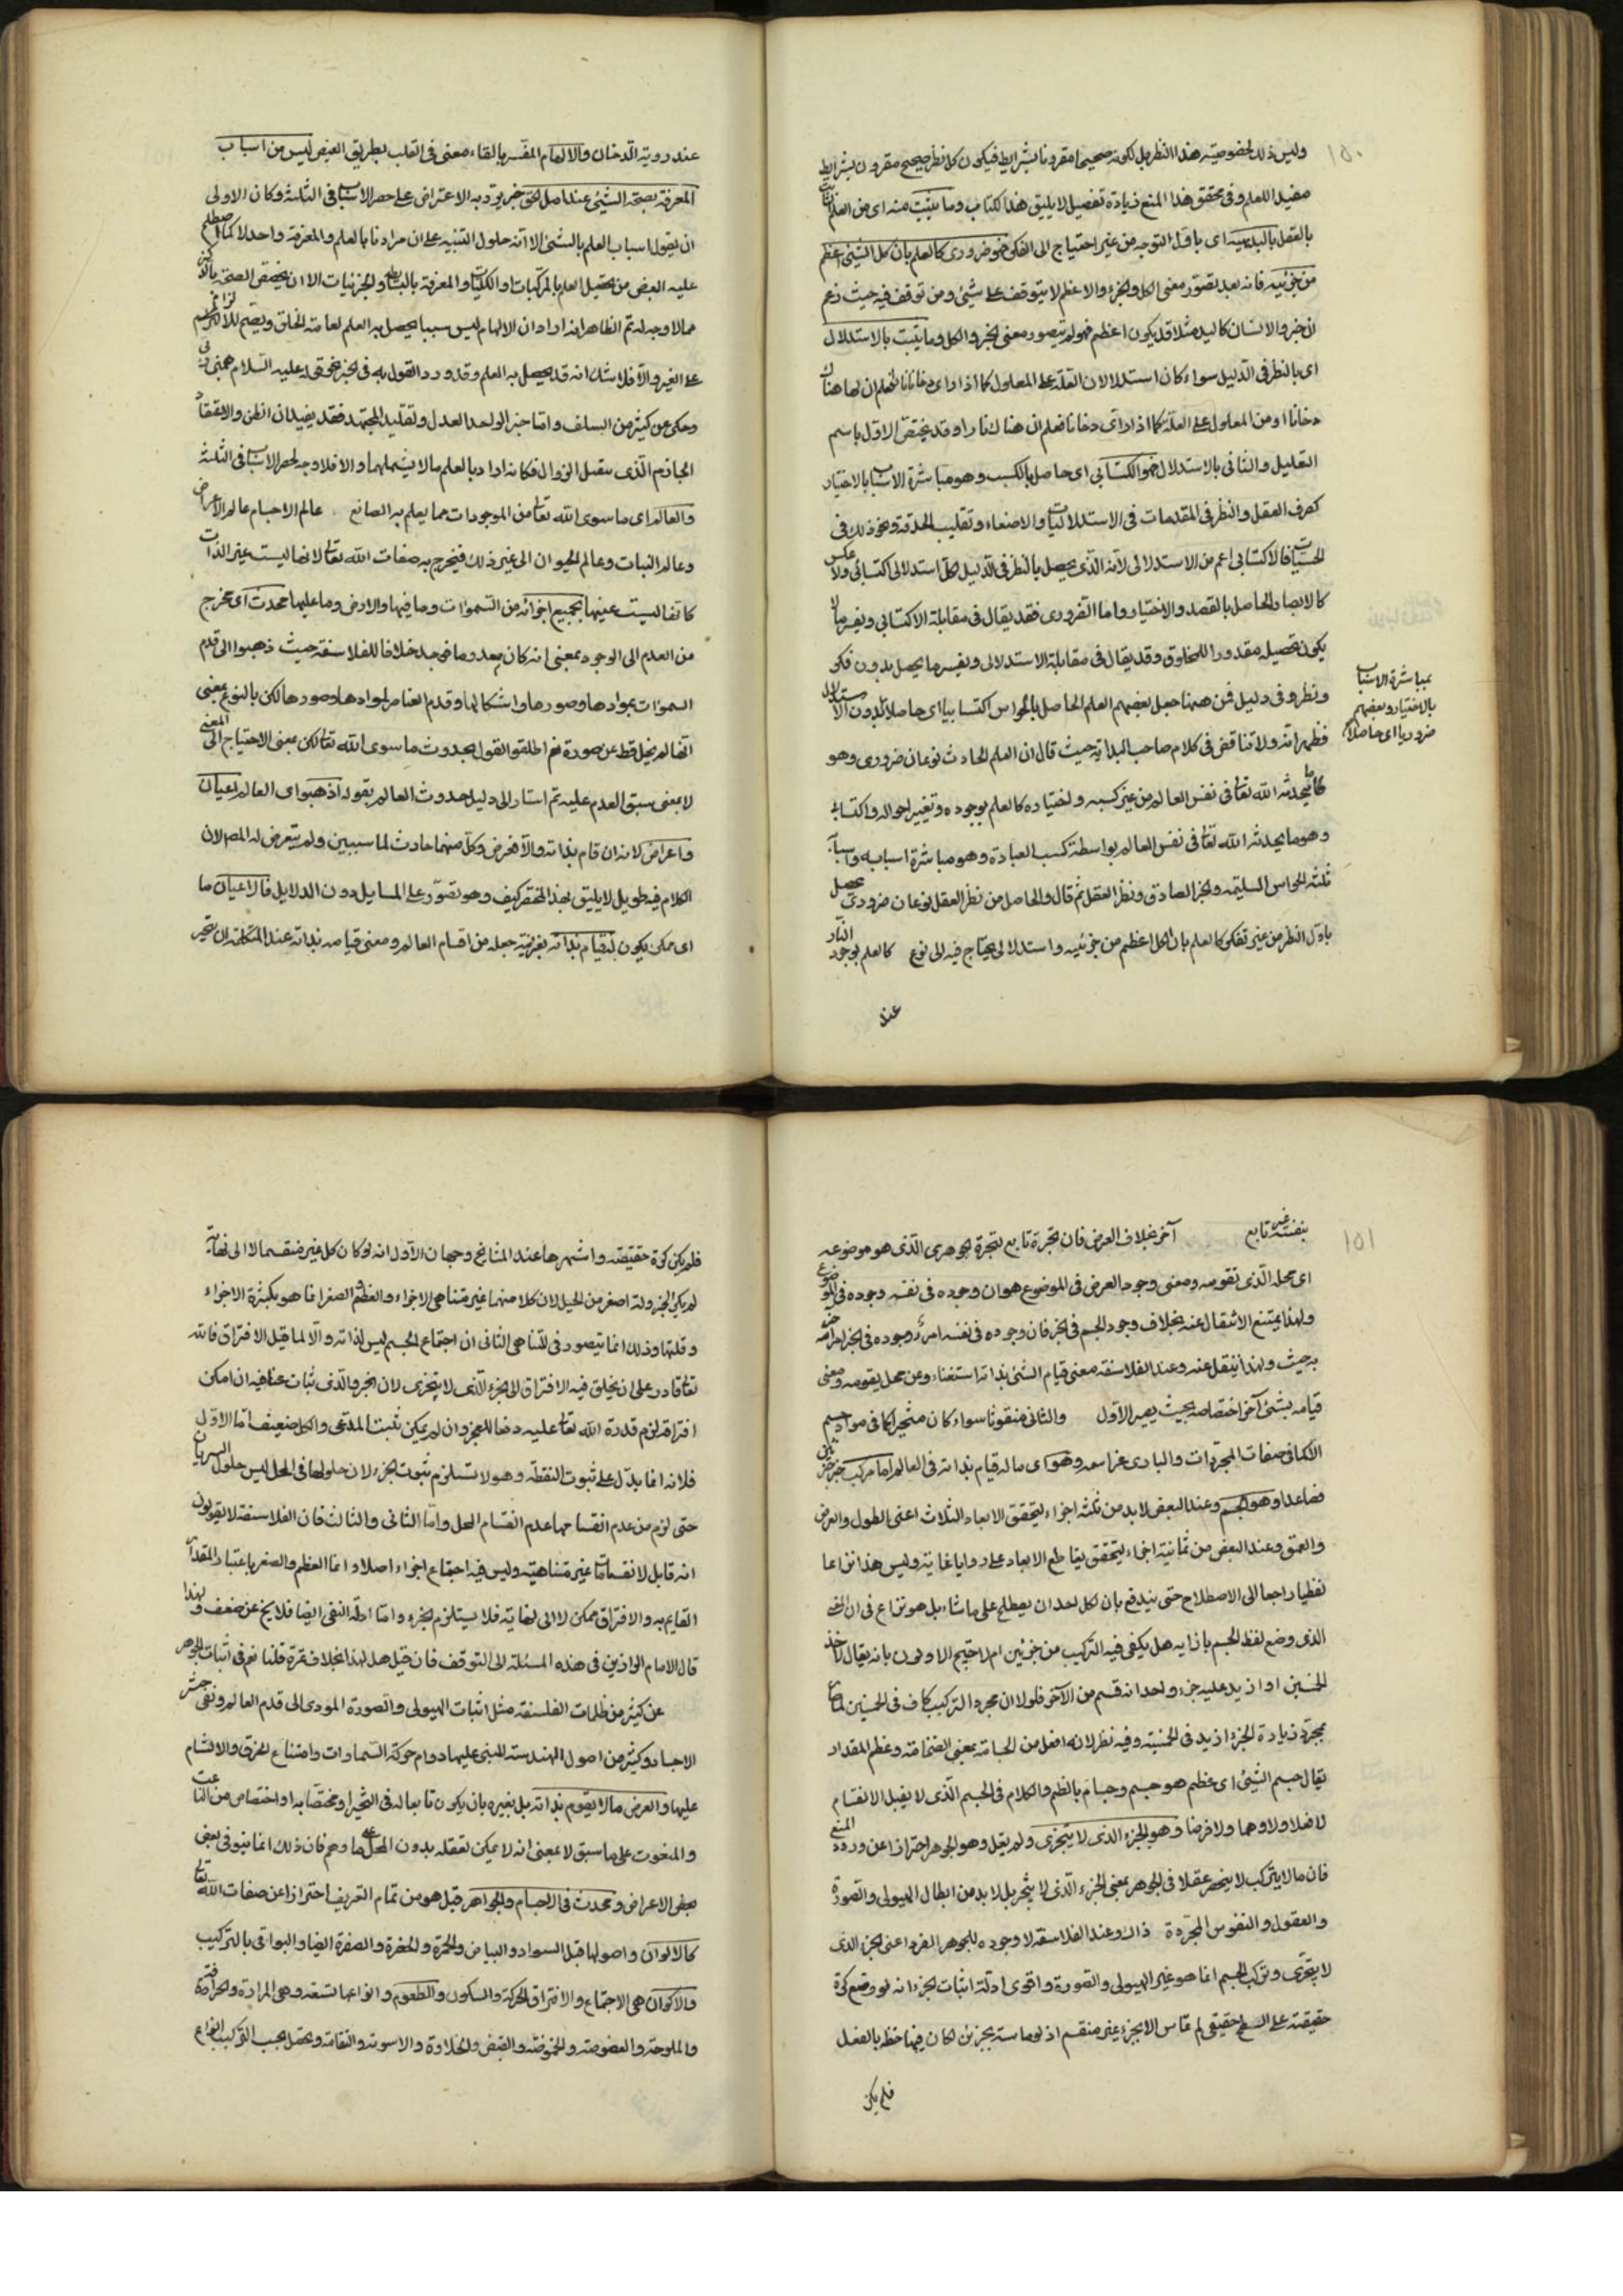 ١٥٠
وليس ذلك لخصوصية هذا النظر بل لكونه صحيحا مقرونا بشرايط فيكون كل نظر صحيح مقرون بشرايط
مفيدا للعلم وفى تحقق هذا المنع زيادة تفصيل لا يليق هذا الكتاب وما يثبت منه اى من العلم الثابت
بالعقل بالبديهيه اى باول التوجه من غير احتياج الى الفكر فهو ضرورى كالعلم بان كل الشيئ اعظم
من جزئيه فانه بعد تصور معنى الكل والجزء والاعظم لا يتوقف على شيئ ومن توقف فيه حيث زعم
ان جزء الانسان كاليد مثلا قد يكون اعظم فهو لم يتصور معنى الجزء والكل وما يثبت بالاستدلال
اى بالنظر فى الدليل سواء كان استدلالا من العلة على المعلول كما اذا راى نارا فعلم ان لها هناك
دخانا او من المعلول على العلة كما اذا راى دخانا فعلم ان هناك نارا وقد يختص الاول باسم
التعليل والثانى بالاستدلال فهو الكتسابى اى حاصل بالكسب وهو مباشرة الاسباب بالاختيار
كصرف العقل والنظر فى المقدمات فى الاستدلاليات والاصغاء وتقليب الحدقة ونحو ذلك فى
الحسيات فالاكتسابى اعم من الاستدلالى لانه الذى يحصل بالنظر فى الدليل فكل استدلالى اكتسابى ولا عكس
كالابصار الحاصل بالقصد والاختيار واما الضرورى فقد يقال فى مقابلة الاكتسابى ويفسر بما لا
يكون تحصيله مقدورا للمخلوق وقد يقال فى مقابلة الاستدلالى ويفسر بما يحصل بدون فكر
ونظر وفى دليل فمن ههنا جعل بعضهم العلم الحاصل بالحواس اكتسابيا اى حاصلا بدون الاستدلال
بمباشرة الاسباب
بالاختيار وبعضهم
ضروريا اى حاصلا
فظهر انه ولا تناقض فى كلام صاحب البداية حيث قال ان العلم الحادث نوعان ضرورى وهو
ما يحدثه الله تعالى فى نفس العالم من غير كسبه واختياره كالعلم بوجوده وتغيير احواله واكتسابى
وهو ما يحدثه الله تعالى فى نفس العالم بواسطة كسب العبادة وهو مباشرة اسبابه واسبابه
ثلثة الحواس السليمة والخبر الصادق ونظر العقل ثم قال والحاصل من نظر العقل نوعان ضرورى يحصل
باول النظر من غير تفكر كالعلم بان الكل اعظم من جزئيه واستدلالى يحتاج فيه الى نوع كالعلم بوجود النار
عند
عند روية الدخان والالهام المفسر بالقاء معنى فى القلب بطريق الفيض ليس من اسباب
المعرفة بصحة الشيئ عند اهل الحق حتى يرد به الاعتراض على حصر الاسباب فى الثلثة وكان الاولى
ان يقول اسباب العلم بالشئ الا انه حاول التنبيه على ان مرادنا بالعلم والمعرفة واحد لا كما اصطلح
عليه البعض من تخصيص العلم بالمركبات والكليات والمعرفة بالبسائط والجزئيات الا ان يخصص الصحة بالذكر
مما لا وجه له ثم الظاهر انه اراد ان الالهام ليس سببا يحصل به العلم لعامة الخلق ويصح للالزام
على الغير والا فلا شك انه قد يحصل به العلم وقد ورد القول به فى الخبر نحو قوله عليه السلام الهمنى ربى
وحكى عن كثير من السلف واما خبر الواحد العدل وتقليد المجتهد فقد يفيدان الظن والاعتقاد
الجازم الذى يقبل الزوال فكانه اراد بالعلم ما لا يشملهما والا فلا وجه لحصر الاسباب فى الثلثة
والعالم اى ما سوى الله تعالى من الموجودات مما يعلم به الصانع عالم الاجسام عالم الاعراض
وعالم النبات وعالم الحيوان الى غير ذلك فيخرج به صفات الله تعالى لانها ليست غير الذات
كانها ليست عينها بجميع اجزائه من السموات وما فيها والارض وما عليها محدث اى مخرج
من العدم الى الوجود بمعنى انه كان معدوما فوجد خلافا للفلاسفة حيث ذهبوا الى قدم
السموات بموادها وصورها واشكالها وقدم العناصر بموادها وصورها لكن بالنوع بمعنى
انها لم يخل قط عن صورة نعم اطلقوا القول بحدوث ما سوى الله تعالى لكن بمعنى الاحتياج الى الغير
لا بمعنى سبق العدم عليه ثم اشار الى دليل حدوث العالم بقوله اذ هو اى العالم اعيان
واعراض لانه ان قام بذاته والا فعرض وكل منهما حادث لما سيبين ولم يتعرض له المص لان
الكلام فيه طويل لا يليق بهذا المختصر كيف وهو مقصور على المسايل دون الدلايل فالاعيان ما
اى ممكن يكون له قيام بذاته بقرينة جعله من اقسام العالم ومعنى قيامه بذاته عند المتكلمين ان يتحيز
١٥١
بنفسه غير تابع آخر بخلاف العرض فان تحيزه تابع لتحيزة الجوهرى الذى هو موضوعه
اى محله الذى تقومه ومعنى وجود العرض فى الموضوع هو ان وجوده فى نفسه وجوده فى الموضوع
ولهذا يمتنع الانتقال عنه بخلاف وجود الجسم فى الحيز فان وجوده فى نفسه امر ووجوده فى الحيز امر آخر
به حيث ولهذا ينتقل عنه وعند الفلاسفة معنى قيام الشئ بذاته استغناءه عن محل يقومه ومعنى
قيامه بشئ آخر اختصاصه بحيث يصير الاول والثانى منعوتا سواء كان متحيزا كما فى سواد الجسم
او لا كما فى صفات المجردات والبارى عز اسمه وهو اى ما له قيام بذاته فى العالم اما مركب من جزئين
فصاعدا وهو الجسم وعند البعض لا بد من ثلثة اجزاء ليتحقق الابعاد الثلاث اعنى الطول والعرض
والعمق وعند البعض من ثمانية اجزاء ليتحقق تقاطع الابعاد على زوايا قائمة وليس هذا نزاعا
لفظيا راجعا الى الاصطلاح حتى يندفع بان لكل احد ان يصطلح على ما شاء بل هو نزاع فى ان المعنى
الذى وضع لفظ الجسم بازايه هل يكفى فيه التركيب من جزئين ام لا احتج الاولون بانه يقال لاحد
الجسمين اذا زيد عليه جزء واحد انه اجسم من الآخر فلولا ان مجرد التركيب كاف فى الجسمين لما صار
بمجرد زيادة الجزء ازيد فى الجسمية وفيه نظر لانه افعل من الجسامة بمعنى الضخامة وعظم المقدار
يقال جسم الشئ اى عظم هو جسيم وجسام بالضم والكلام فى الجسم الذى لا يقبل الانقسام
لا فعلا ولا وهما ولا فرضا وهو الجزء الذى لا يتجزى ولم يقل وهو الجوهر احترازا عن ورود المنع
فان ما لا يتركب لا ينحصر عقلا فى الجوهر بمعنى الجزء الذى لا يتجزى بل لا بد من ابطال الهيولى والصورة
والعقول والنفوس المجردة ذلك وعند الفلاسفة لا وجود للجوهر الفرد اعنى الجزء الذى
لا يتجزى وتركب الجسم انما هو غير الهيولى والصورة واقوى ادلة اثبات الجزء انه لو وضع كرة
حقيقية على السطح حقيقى لم تماس الا بجزء غير منقسم اذ لو ماسته بجزئين لكان فيها خط بالفعل
فلم يكن
فلم يكن كرة حقيقة واشهرها عند المشايخ وجهان الاول انه لو كان كل غير منقسما لا الى نهاية
لم يكن الخردلة اصغر من الجبل لان كلا منهما غير متناهى الاجزاء والعظم والصغر انما هو بكثرة الاجزاء
وقلتها وذلك انما يتصور فى المتناهى الثانى ان اجتماع الجسم ليس لذاته والا لما قبل الافتراق فالله
تعالى قادر على ان يخلق فيه الافتراق الى الجزء الذى لا يتجزى لان الجزء الذى تنازعنا فيه ان امكن
افتراقه لزم قدرة الله تعالى عليه دفعا للعجز وان لم يمكن ثبت المدعى والكل ضعيف اما الاول
فلانه انما يدل على ثبوت النقطة وهو لا يستلزم ثبوت الجزء لان حلولها فى المحل ليس حلول السريان
حتى لزم من عدم انقسامها عدم انقسام المحل واما الثانى والثالث فان الفلاسفة لا يقولون
انه قابل لانقسامات غير متناهية وليس فيه اجتماع اجزاء اصلا وانما العظم والصغر باعتبار المقدار
القايم به والافتراق ممكن لا الى نهاية فلا يستلزم الجزء واما ادلة النفى ايضا فلا يخ عن ضعف ولهذا
قال الامام الرازى فى هذه المسئلة الى التوقف فان قيل هل لهذا الخلاف ثمرة قلنا نعم فى اثبات الجوهر
عن كثير من ظلمات الفلسفة مثل اثبات الهيولى والصورة المودى الى قدم العالم ونفى حشر
الاجساد وكثير من اصول الهندسة المبنى عليها دوام حركة السماوات وامتناع الخرق والالتيام
عليها والعرض ما لا يقوم بذاته بل بغيره بان يكون تابعا له فى التحيز او مختصا به اختصاص من الناعت
والمنعوت على ما سبق لا بمعنى انه لا يمكن تعقله بدون المحل على ما وهم فان ذلك انما هو فى بعض
بعض الاعراض ويحدث فى الاجسام والجواهر قيل هو من تمام التعريف احترازا عن صفات الله تعالى
كالالوان واصولها قيل السواد والبياض والحمرة والخضرة والصفرة ايضا والبواقى بالتركيب
والاكوان هى الاجتماع والافتراق والحركة والسكون والطعوم وانواعها تسعة وهى المرارة والحرافة
والملوحة والعفوصة والحموضة والقبض والحلاوة والدسومة والتفاهة ويحصل بحسب التركيب انواع